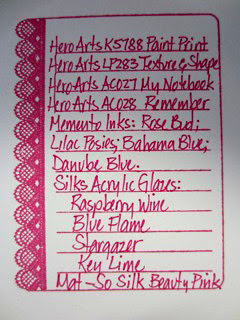 Hero Arts K5788 Paint Print
Hero Arts LP283 Texture & Shape
Hero Arts AC027 My Notebook
Hero Arts AC028 Remember
Memento Inks: Rose Bud;
Lilac Posies; Bahama Blue;
Danube Blue.
Silks Acrylic Glazes:
Raspberry Wine
Blue Flame
Stargazer
Key Lime
Mat - So Silk Beauty Pink